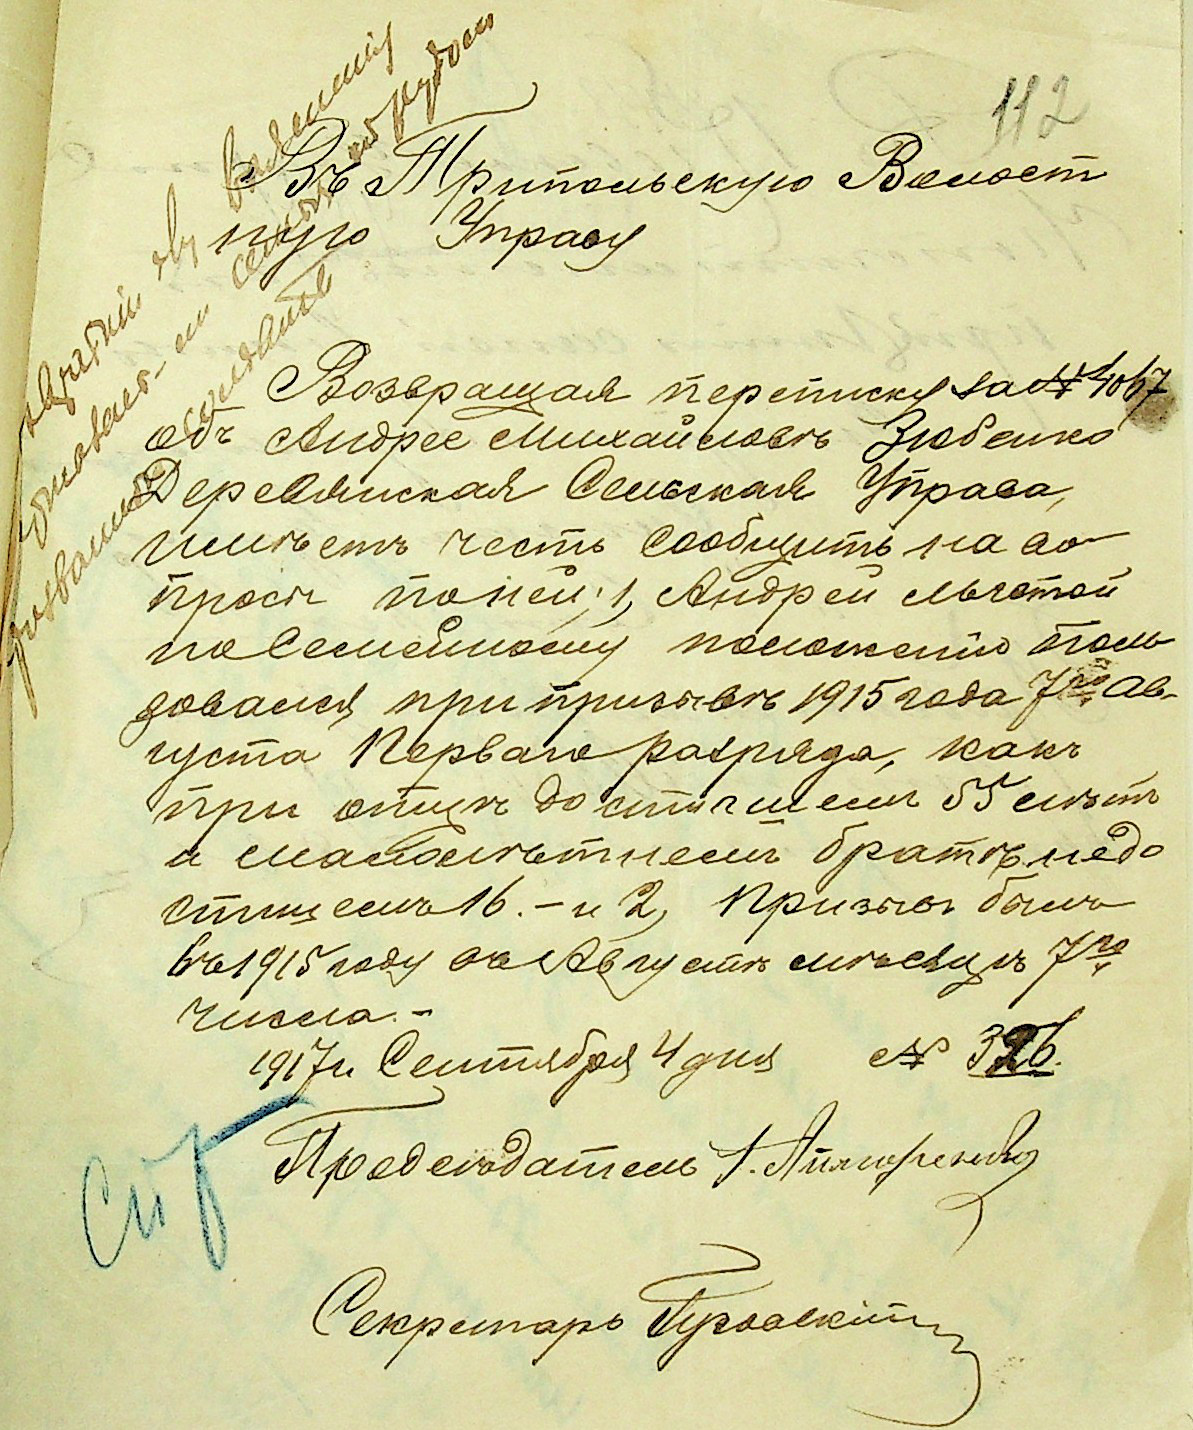 112
Въ Трипольскую Волост
ную Управу
Возвращая переписку за № 4067
объ Андрее Михайловѣ Зюбенко
Деревянская Сельская Управа,
имѣетъ честь сообщить на во
просы по ней; 1, Андрей льготой
по Семейному положенію поль
зовался при призывѣ 1915 года 7го Ав-
густа Перваго разряда, какъ
при отцѣ достигшемъ 55 лѣтъ
и малолѣтнемъ братѣ недо
стигшемъ 16. – и 2, Призывъ былъ
въ 1915 году въ Августѣ мѣсяцѣ 7го
числа. –
1917 г. Сентября 4 дня № 326.
Председатель
Секретарь